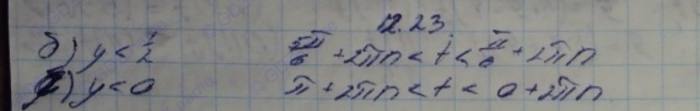 12.23.
б) y < 1/2   5π/6 + 2πn < t < π/6 + 2πn
) y < 0   π + 2πn < t < 0 + 2πn